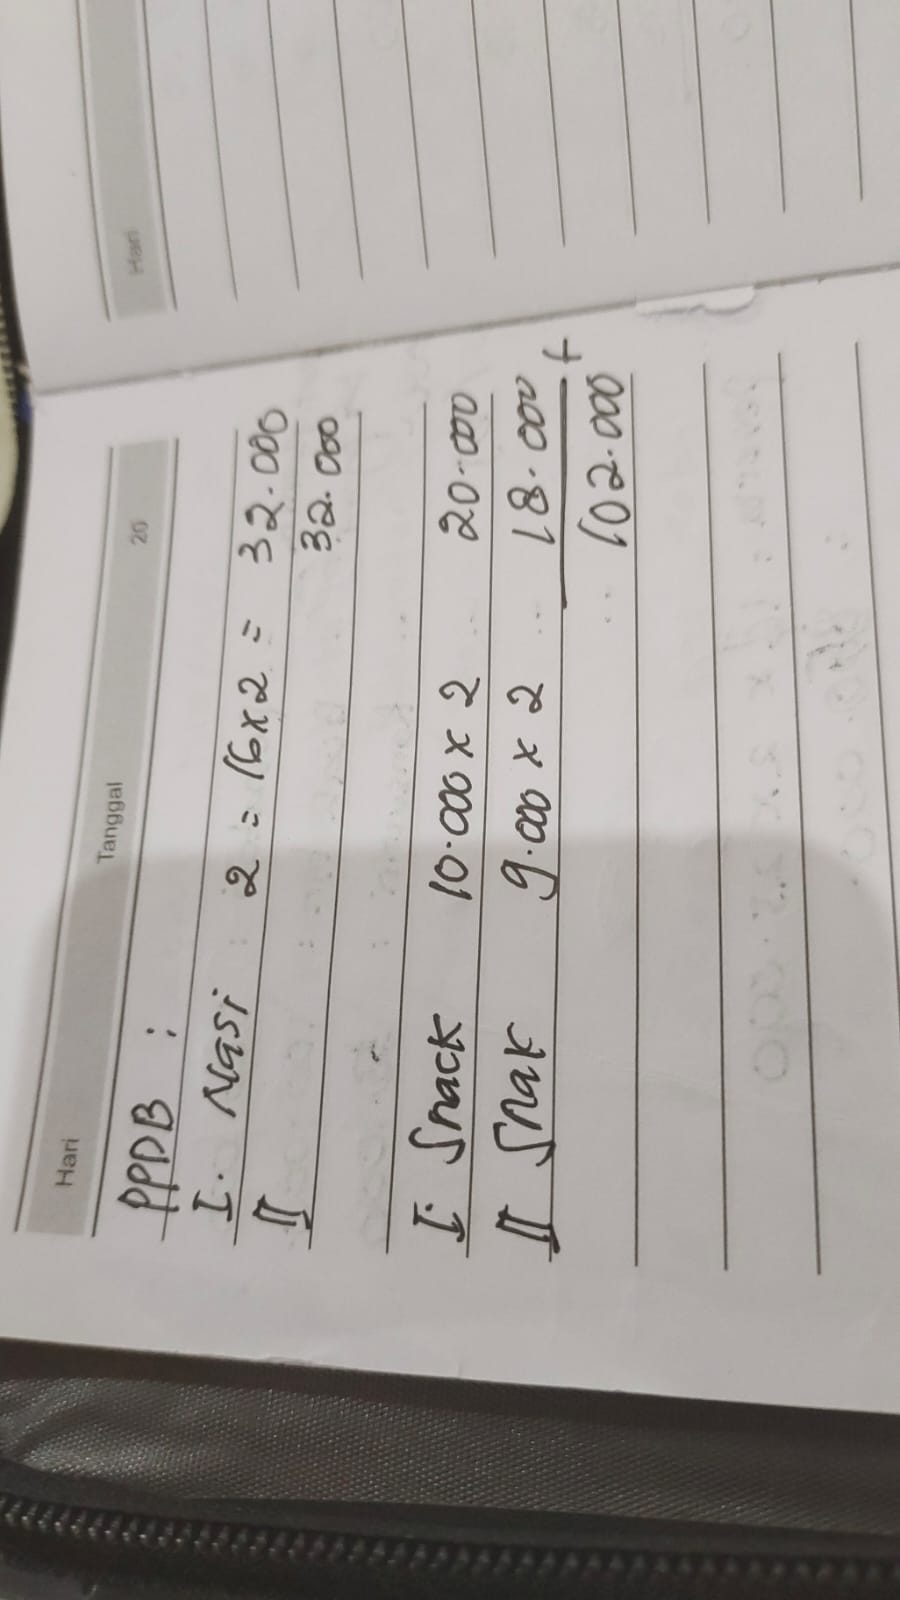 Hari Tanggal 20
PPDB :
I. Nasi 2 = 16 x 2 = 32.000
II 32.000
I. Snack 10.000 x 2 20.000
II Snak 9.000 x 2 18.000 +
102.000
Hari